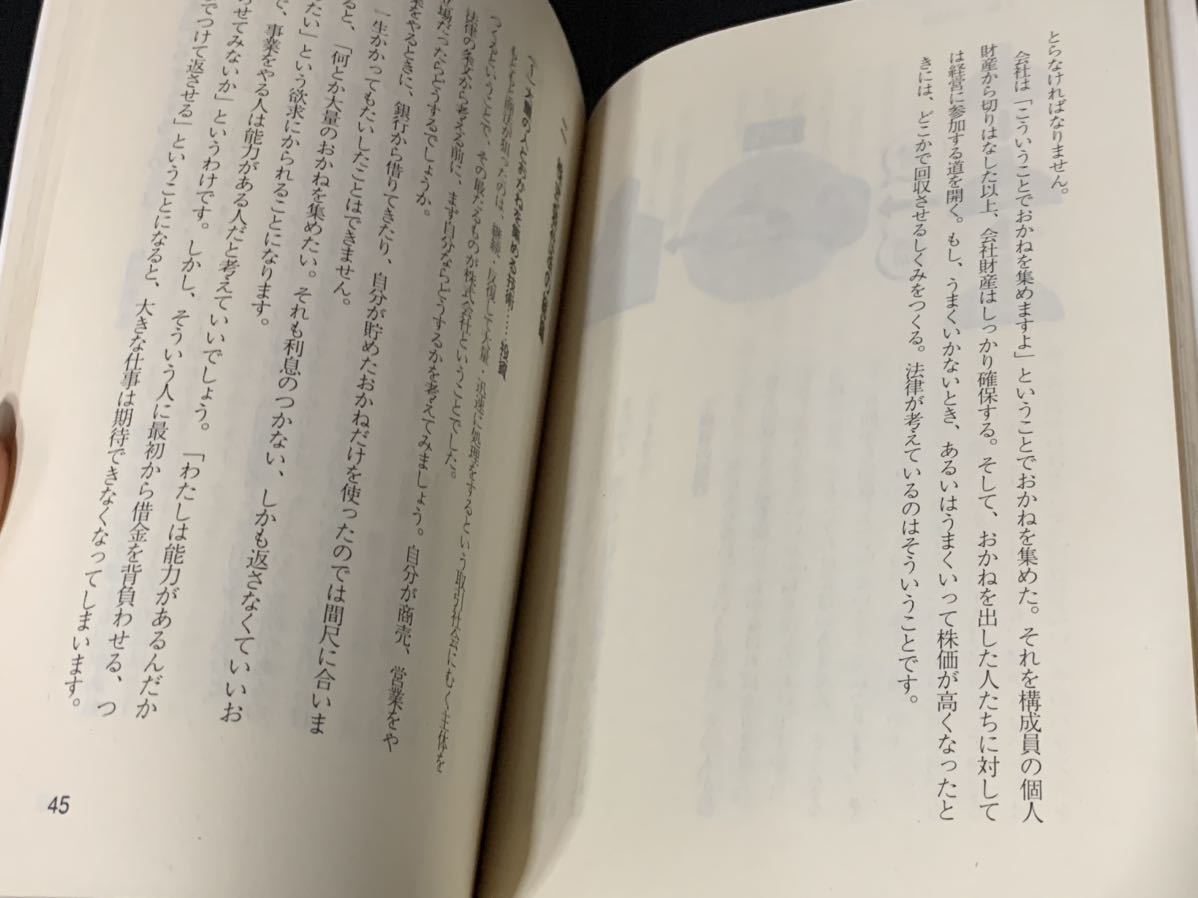 とらなければなりません。
会社は「こういうことでおかねを集めますよ」ということでおかねを集めた。それを構成員の個人
財産から切りはなした以上、会社財産はしっかり確保する。そして、おかねを出した人たちに対して
は経営に参加する道を開く。もし、うまくいかないとき、あるいはうまくいって株価が高くなったと
きには、どこかで回収させるしくみをつくる。法律が考えているのはそういうことです。
(一) 大勢の人とおかねを集める技術……
もともと商法が狙ったのは、継続・反復して大量・迅速に処理をするという取引社会にむく主体を
つくるということで、その最たるものが株式会社ということでした。
法律の条文から考える前に、まず自分ならどうするかを考えてみましょう。自分が商売、営業をや
場だったらどうするでしょうか。
業をやるときに、銀行から借りてきたり、自分が貯めたおかねだけを使ったのでは間尺に合いま
一生かかってもたいしたことはできません。
ると、「何とか大量のおかねを集めたい。それも利息のつかない、しかも返さなくていいお
たい」という欲求にかられることになります。
で、事業をやる人は能力がある人だと考えていいでしょう。「わたしは能力があるんだか
らせてみないか」というわけです。しかし、そういう人に最初から借金を背負わせる、つ
でつけて返させる」ということになると、大きな仕事は期待できなくなってしまいます。
45